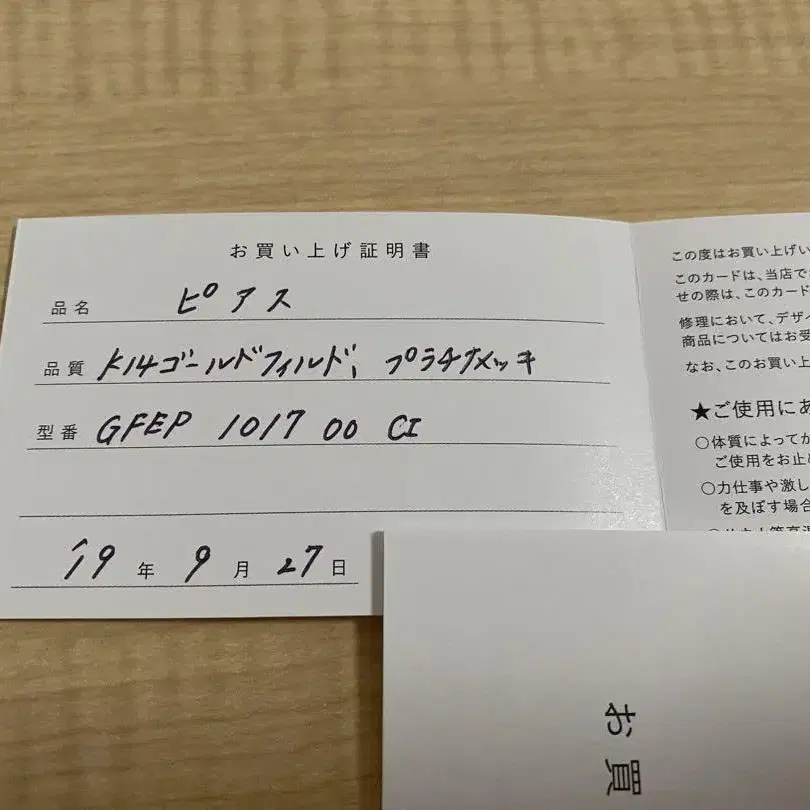 お買い上げ証明書
品名 ピアス
品質 K14ゴールドフィルド、プラチナメッキ
型番 GFEP 1017 00 CI
'19年 9月 27日
この度はお買い上げい
このカードは、当店で
せの際は、このカード
修理において、デザイ
商品についてはお受
なお、このお買い上
★ご使用にあ
○体質によってか
ご使用をお止め
○力仕事や激し
を及ぼす場合
お買